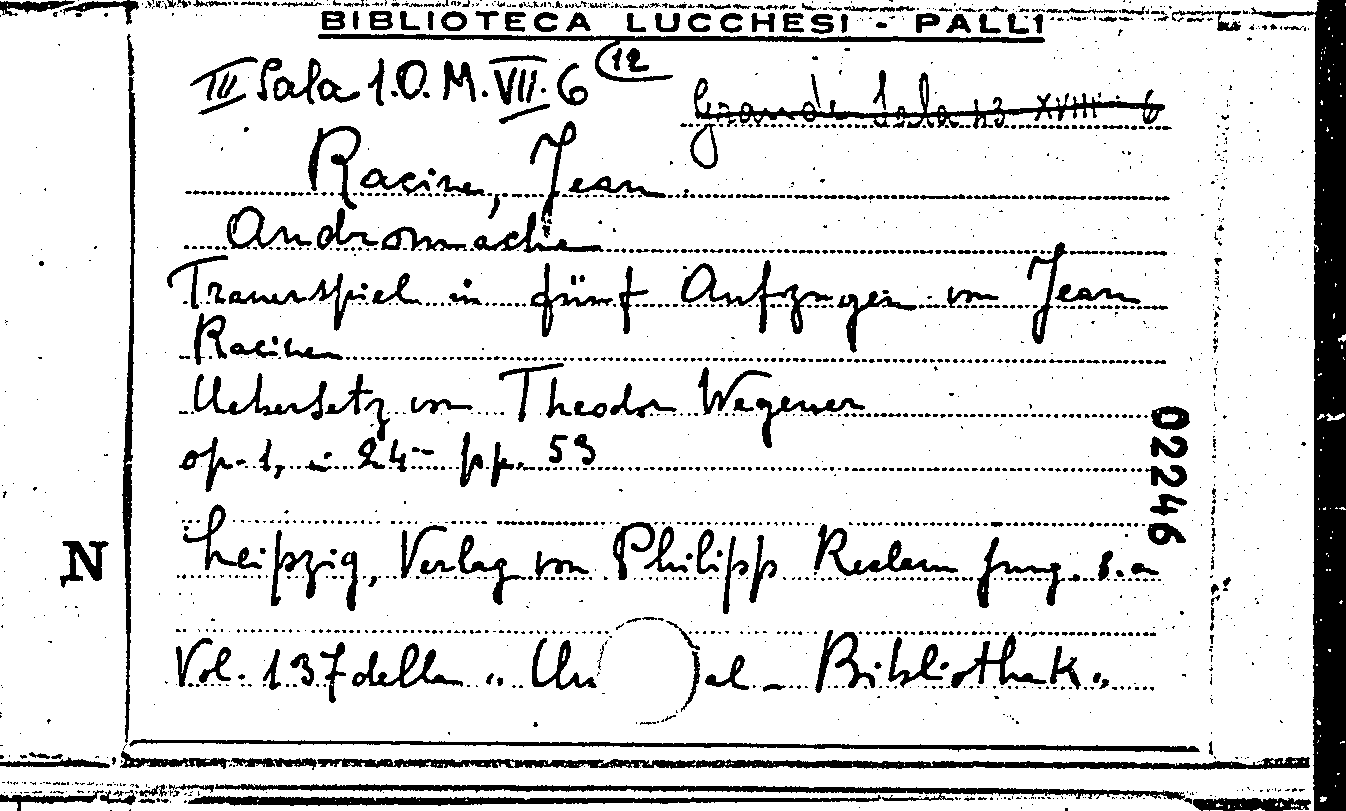 BIBLIOTECA LUCCHESI - PALLI
III Sala 1.O.M.VII.6 (12
Grande Sala 43 XVIII 6
Racine, Jean
Andromache
Trauerspiel in fünf Aufzugen von Jean
Racinen
Uebersetz von Theodor Wegener
op. 1, in 24- pp. 53
Leipzig, Verlag von Philipp Reclam jung. s.a
Vol. 137 della " Un al - Bibliothek "
02246
N